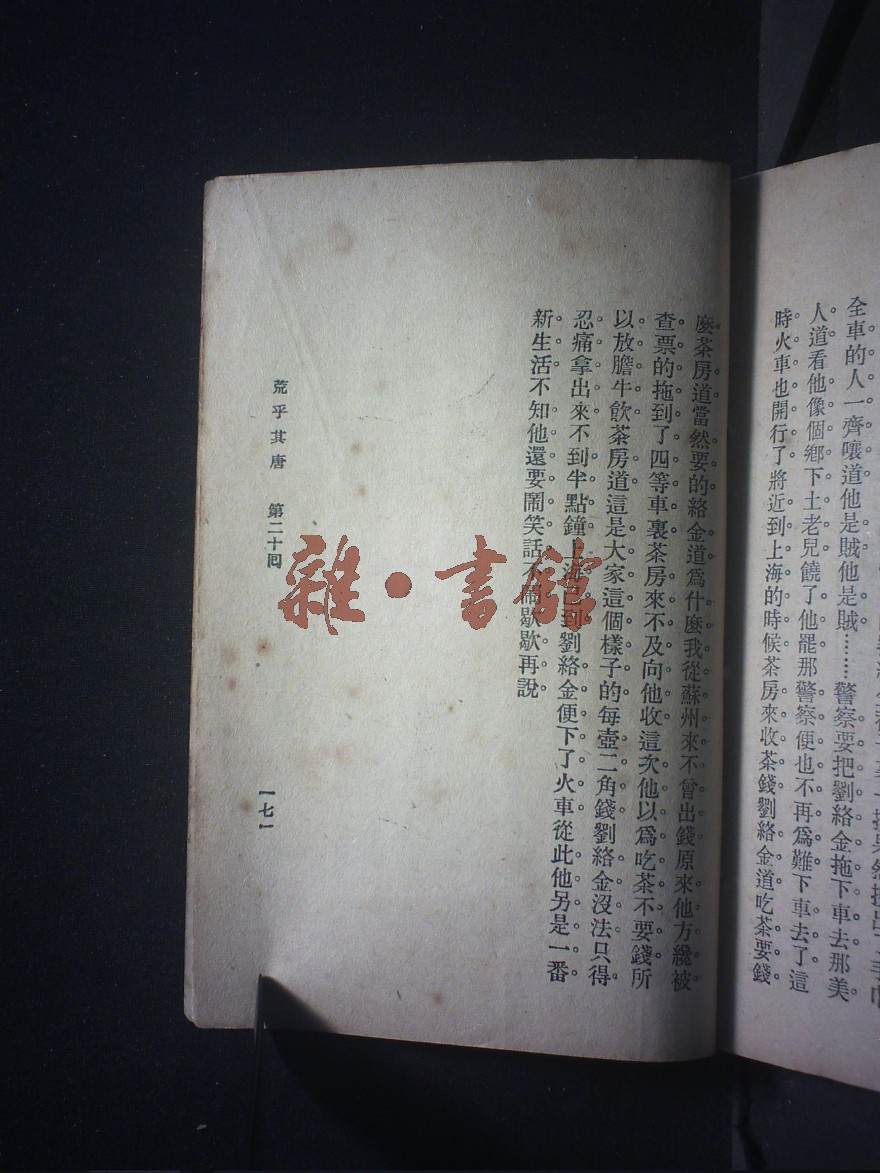 全車的人一齊嚷道他是賊他是賊………警察要把劉絡金拖下車去那美
人道看他像個鄉下土老兒饒了他罷那警察便也不再爲難下車去了這
時火車也開行了將近到上海的時候茶房來收茶錢劉絡金道吃茶要錢
麼茶房道當然要的絡金道爲什麼我從蘇州來不曾出錢原來他方纔被
查票的拖到了四等車裏茶房來不及向他收這次他以爲吃茶不要錢所
以放膽牛飲茶房道這是大家這個樣子的每壺二角錢劉絡金沒法只得
忍痛拿出來不到半點鐘上海已到劉絡金便下了火車從此他另是一番
新生活不知他還要鬧笑話不鬧歇歇再說
荒乎其唐 第二十回
一七一
雜·書館